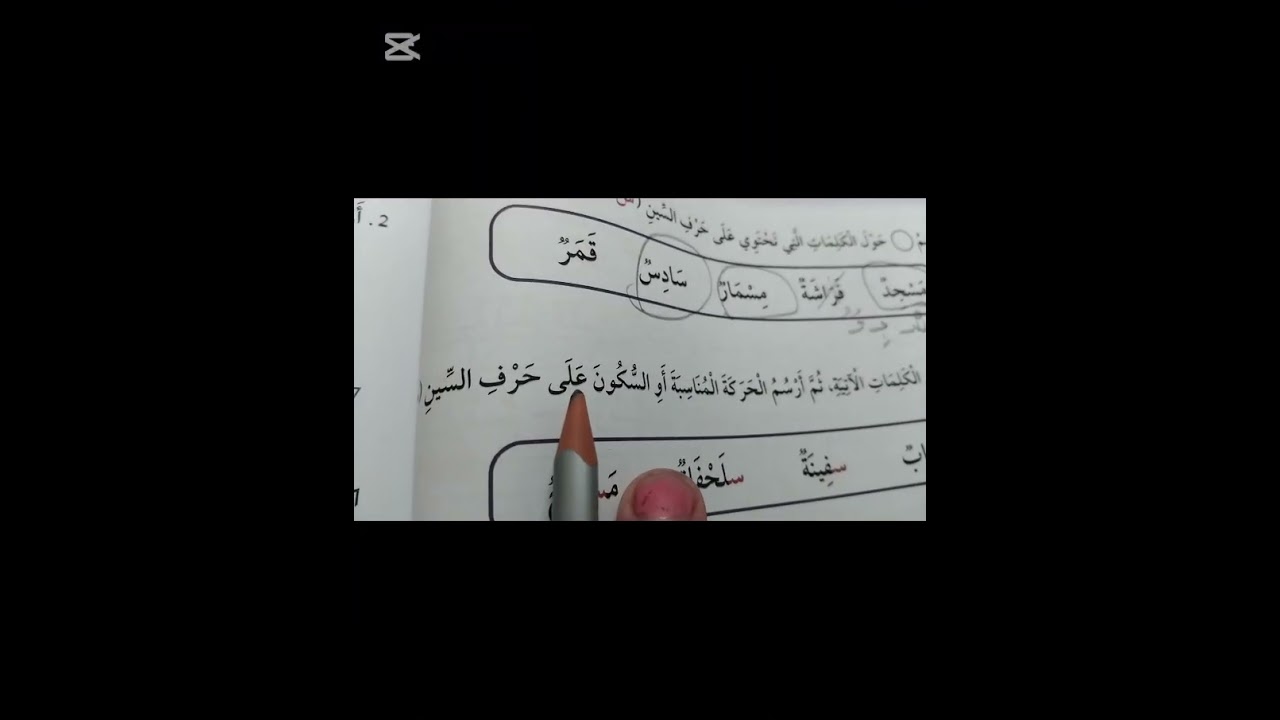 حَوْلَ الْكَلِمَاتِ الَّتِي تَحْتَوِي عَلَى حَرْفِ السِّينِ (س
مَسْجِدٌ فَرَاشَةٌ مِسْمَارٌ سَادِسٌ قَمَرٌ
2.
الْكَلِمَاتِ الْآتِيَةِ، ثُمَّ أَرْسُمُ الْحَرَكَةَ الْمُنَاسِبَةَ أَوِ السُّكُونَ عَلَى حَرْفِ السِّينِ (
سفِينَةٌ سلَحْفَاةٌ